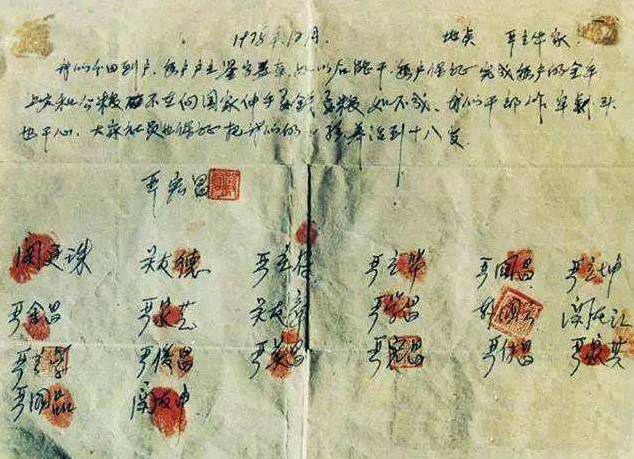 1978年12月. 地点 严立华家.
我们分田到户,每户户主签字盖章,如以后能干,每户保证完成每户的全年
上交和公粮.不在向国家伸手要钱要粮.如不成,我们干部作牢刹头
也干心,大家社员也保证把我们的小孩养活到十八岁.
严宏昌
关廷珠 关友德 严立符 严立华 严国昌 严立坤
严金昌 关友章 严学昌 韩国云 关友江
严立学 严俊昌 严美昌 严宏昌 严付昌 严家其
严国品 关友申